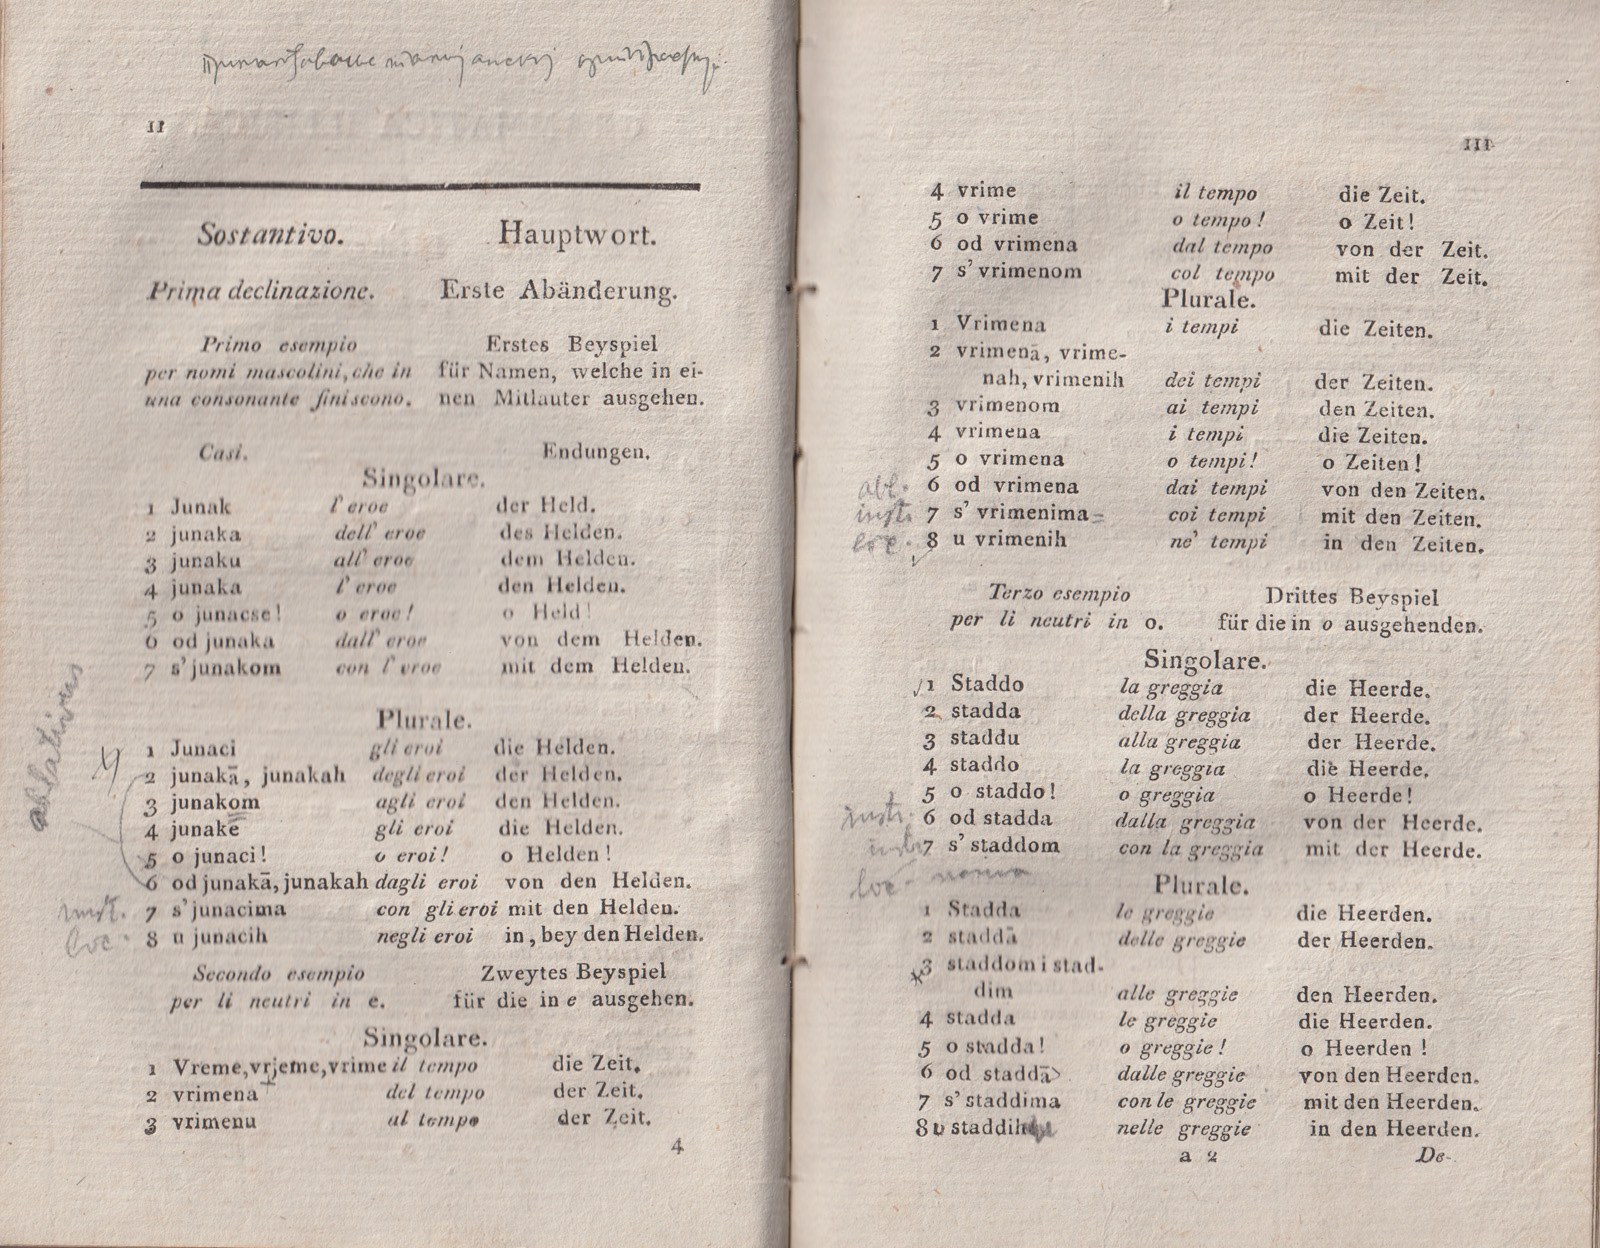 II
Sostantivo. Hauptwort.
Prima declinazione. Erste Abänderung.
Primo esempio Erstes Beyspiel
per nomi mascolini, che in für Namen, welche in ei-
una consonante finiscono. nen Mitlauter ausgehen.
Casi. Endungen.
Singolare.
1 Junak l' eroe der Held.
2 junaka dell' eroe des Helden.
3 junaku all' eroe dem Helden.
4 junaka l' eroe den Helden.
5 o junacse! o eroe! o Held!
6 od junaka dall' eroe von dem Helden.
7 s' junakom con l' eroe mit dem Helden.
ablativus
Plurale.
1 Junaci gli eroi die Helden.
2 junakā, junakah degli eroi der Helden.
3 junakom agli eroi den Helden.
4 junake gli eroi die Helden.
5 o junaci! o eroi! o Helden!
6 od junakā, junakah dagli eroi von den Helden.
inst. 7 s' junacima con gli eroi mit den Helden.
loc. 8 u junacih negli eroi in, bey den Helden.
Secondo esempio Zweytes Beyspiel
per li neutri in e. für die in e ausgehen.
Singolare.
1 Vreme, vrjeme, vrime il tempo die Zeit.
2 vrimena del tempo der Zeit.
3 vrimenu al tempo der Zeit.
4
III
4 vrime il tempo die Zeit.
5 o vrime o tempo! o Zeit!
6 od vrimena dal tempo von der Zeit.
7 s' vrimenom col tempo mit der Zeit.
Plurale.
1 Vrimena i tempi die Zeiten.
2 vrimenā, vrime-
nah, vrimenih dei tempi der Zeiten.
3 vrimenom ai tempi den Zeiten.
4 vrimena i tempi die Zeiten.
5 o vrimena o tempi! o Zeiten!
abl. 6 od vrimena dai tempi von den Zeiten.
inst. 7 s' vrimenima coi tempi mit den Zeiten.
loc. 8 u vrimenih ne' tempi in den Zeiten.
Terzo esempio Drittes Beyspiel
per li neutri in o. für die in o ausgehenden.
Singolare.
1 Staddo la greggia die Heerde.
2 stadda della greggia der Heerde.
3 staddu alla greggia der Heerde.
4 staddo la greggia die Heerde.
5 o staddo! o greggia o Heerde!
instr. 6 od stadda dalla greggia von der Heerde.
instr 7 s' staddom con la greggia mit der Heerde.
loc.
Plurale.
1 Stadda le greggie die Heerden.
2 staddā delle greggie der Heerden.
3 staddom i stad-
dim alle greggie den Heerden.
4 stadda le greggie die Heerden.
5 o stadda! o greggie! o Heerden!
6 od staddā dalle greggie von den Heerden.
7 s' staddima con le greggie mit den Heerden.
8 u staddih nelle greggie in den Heerden.
a 2 De-